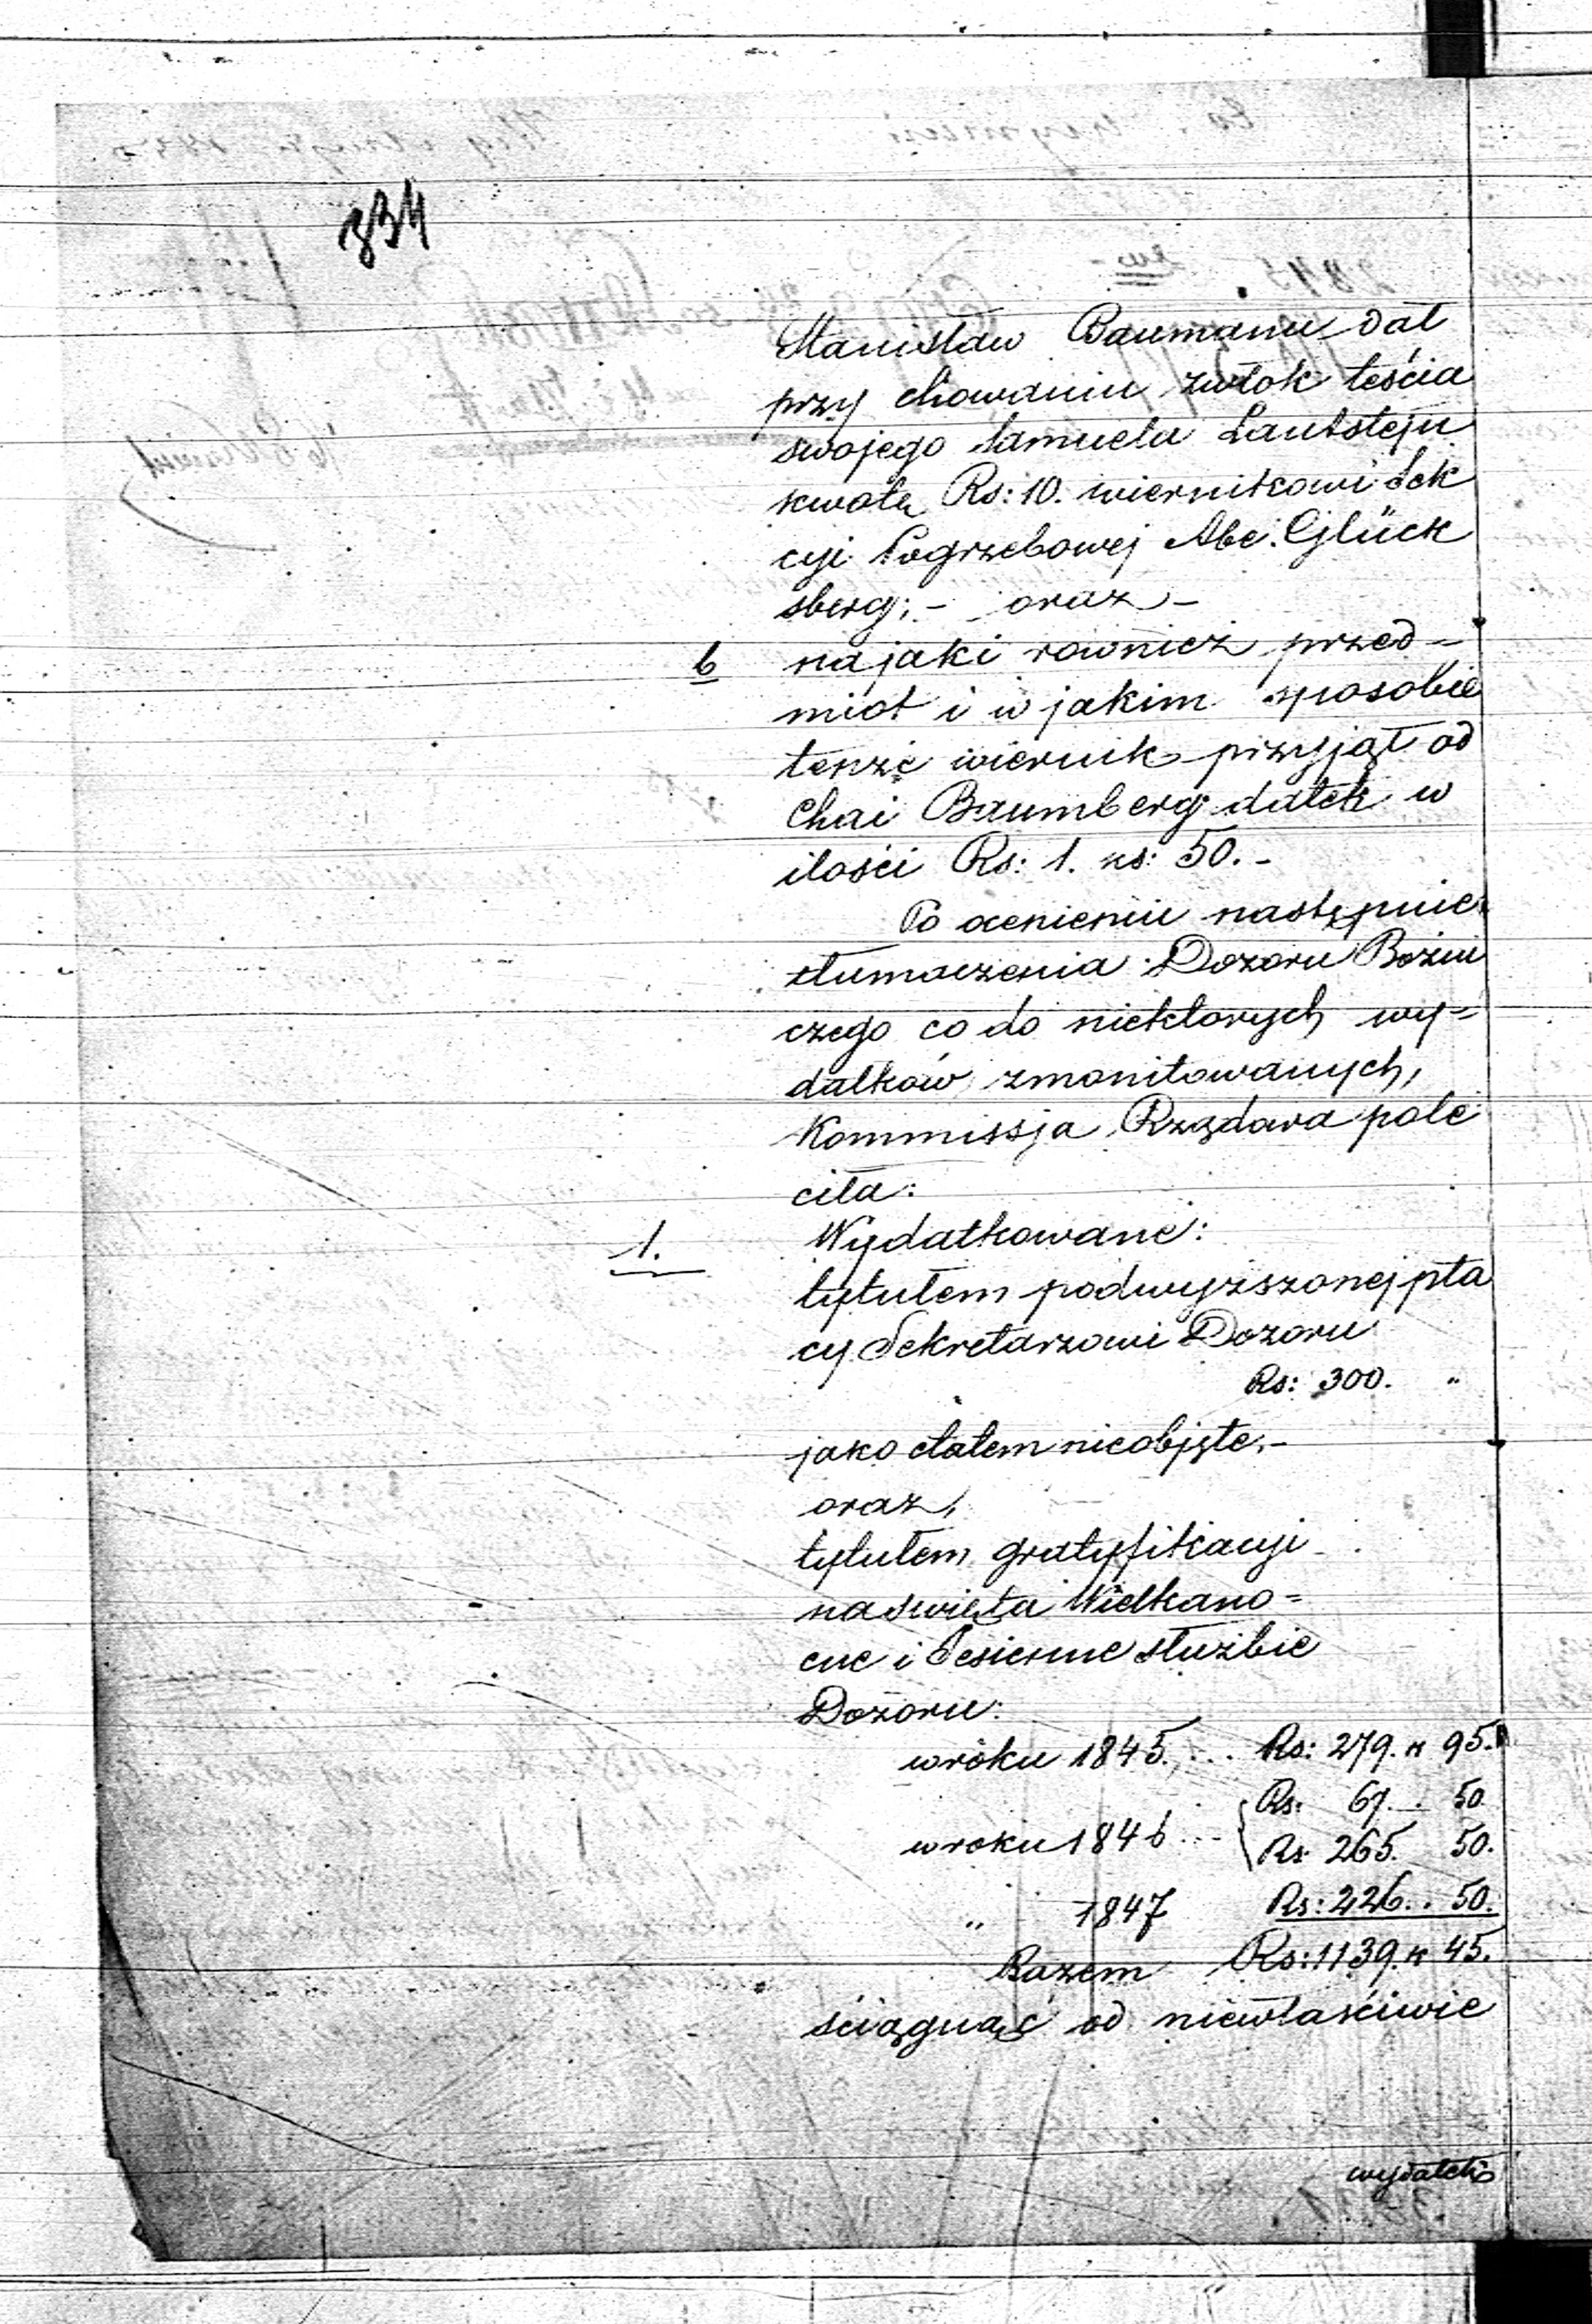 334
Stanisław Baumann dał
przy chowaniu zwłok teścia
swojego Samuela Lautsteju
kwotę Rs: 10. wiernikowi Sek
cyi Pogrzebowej Abe: Glück
sberg; - oraz -
b na jaki rownież przed-
miot i w jakim sposobie
tenże wiernik przyjął od
Chai Baumberg datek w
ilości Rs: 1. ks: 50. -
Po ocenieniu następnie
tłumaczenia Dozoru Bożni
czego co do niektorych wy=
datków zmonitowanych,
Kommissja Rządowa pole
ciła:
1. Wydatkowane:
tytułem podwyższonej pła
cy Sekretarzowi Dozoru
Rs: 300. "
jako etatem nieobjęte, -
oraz,
tytułem gratyfikacyi
na święta Wielkano=
cne i Jesienne służbie
Dozoru:
w roku 1845. ... Rs: 279. k 95.
Rs. 67. . 50
w roku 1846 ... Rs. 265. 50.
" 1847 Rs: 226. . 50.
Razem Rs: 1139. k 45.
ściągnąć od niewłaściwie
wydatek